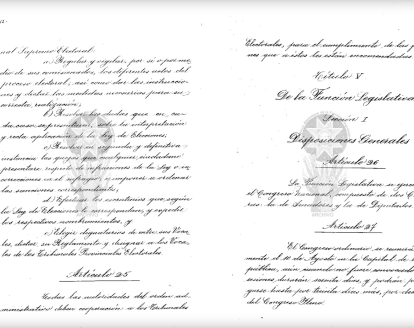 nal Supremo Electoral:
a) Regular y vigilar, por sí o por me-
dio de sus comisionados, los diferentes actos del
proceso electoral, así como dar las instruccio-
nes y dictar las medidas necesarias para su
correcta realización;
b) Resolver las dudas que, en ca-
da caso, se presentaren, sobre la interpretación
y recta aplicación de la Ley de Elecciones;
c) Resolver en segunda y definitiva
instancia las quejas que cualquier ciudadano
presentare respecto de infracciones de la Ley o in-
correcciones en el sufragio, e imponer u ordenar
las sanciones correspondientes;
d) Efectuar los escrutinios que, según
la Ley de Elecciones le correspondan, y expedir
los respectivos nombramientos, y
e) Elegir dignatarios de entre sus Voca-
les, dictar su Reglamento y designar a los Voca-
les de los Tribunales Provinciales Electorales.
Artículo 25
Todas las autoridades del orden ad-
ministrativo deben cooperación a los Tribunales
Electorales, para el cumplimiento de las
nes que a éstos les están encomendadas
Título V
De la Función Legislativa
Sección I
Disposiciones Generales
Artículo 26
La Función Legislativa se
el Congreso Nacional, compuesto de dos
ras: la de Senadores y la de Diputados.
Artículo 27
El Congreso ordinario se reunirá
mente el 10 de Agosto en la Capital de
pública, aun cuando no fuere convocado
siones durarán sesenta días, y podrán
garse hasta por treinta días más, por
del Congreso Pleno.